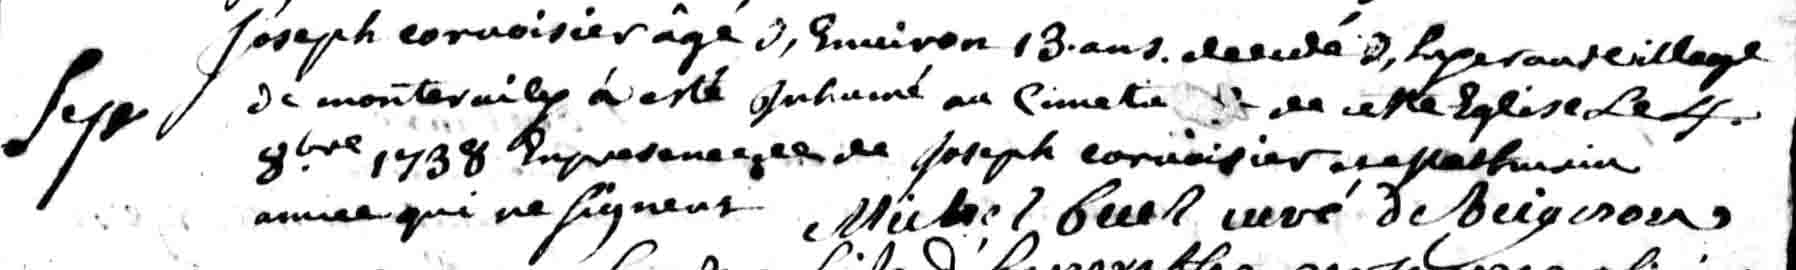 Joseph corvoisier âgé d, Environ 13. ans. decedé d, village
Sep de monterneilz à esté Inhumé au Cimetie de cette Eglise Le 4.
8.bre 1738 En presence de Joseph corvoisier et
amice qui ne signent Michel curé De Beignon